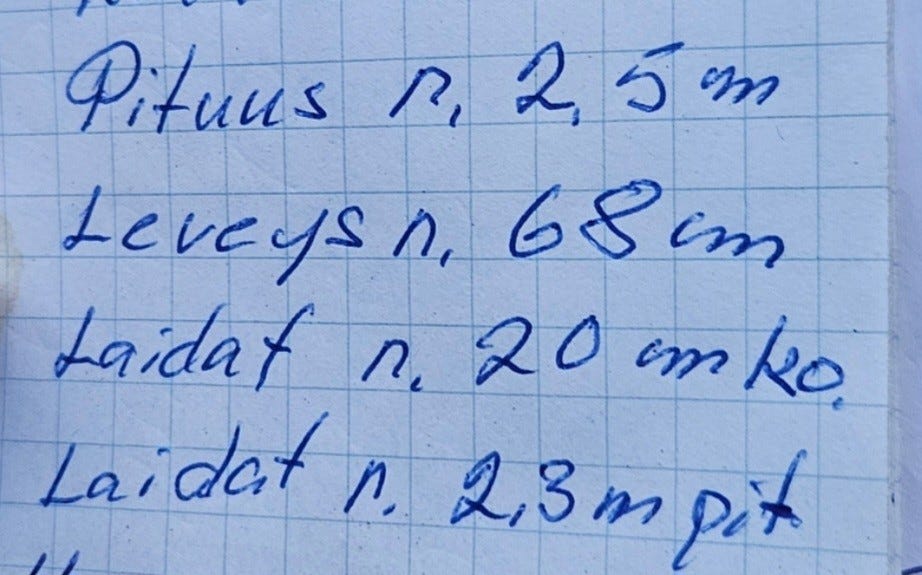 Pituus n. 2,5 m
Leveys n. 68 cm
Laidat n. 20 cm ko.
Laidat n. 2,3 m pit